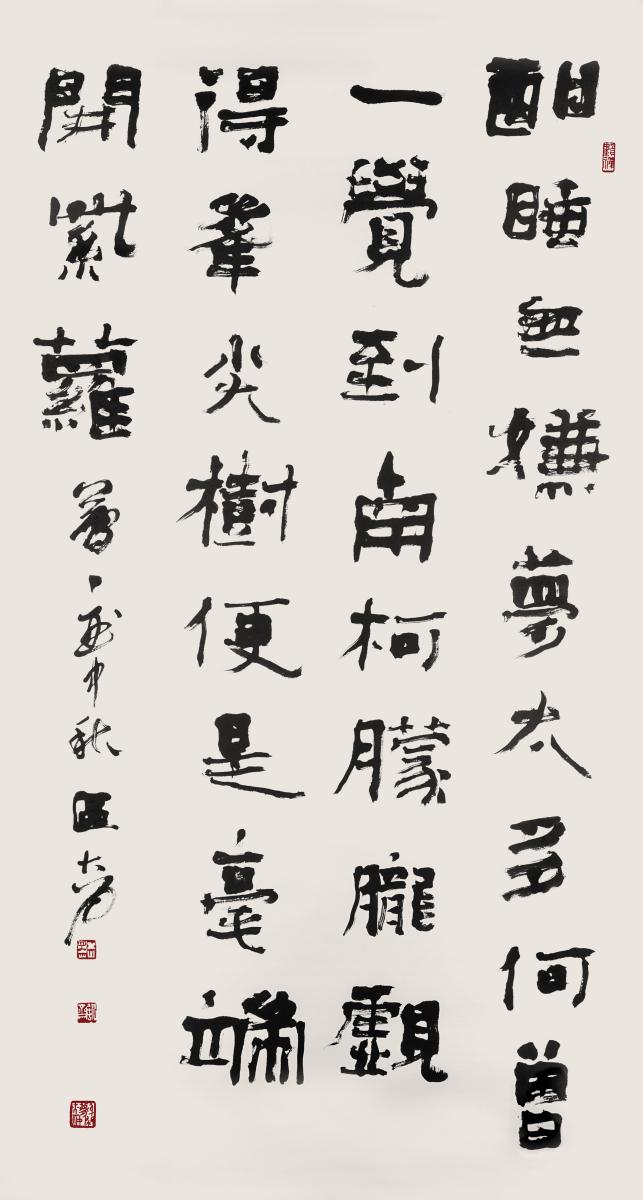 酣睡無嫌夢太多何曾
一覺到南柯朦朧覷
得尖樹便是毫端
開紫蘿 中秋區大為